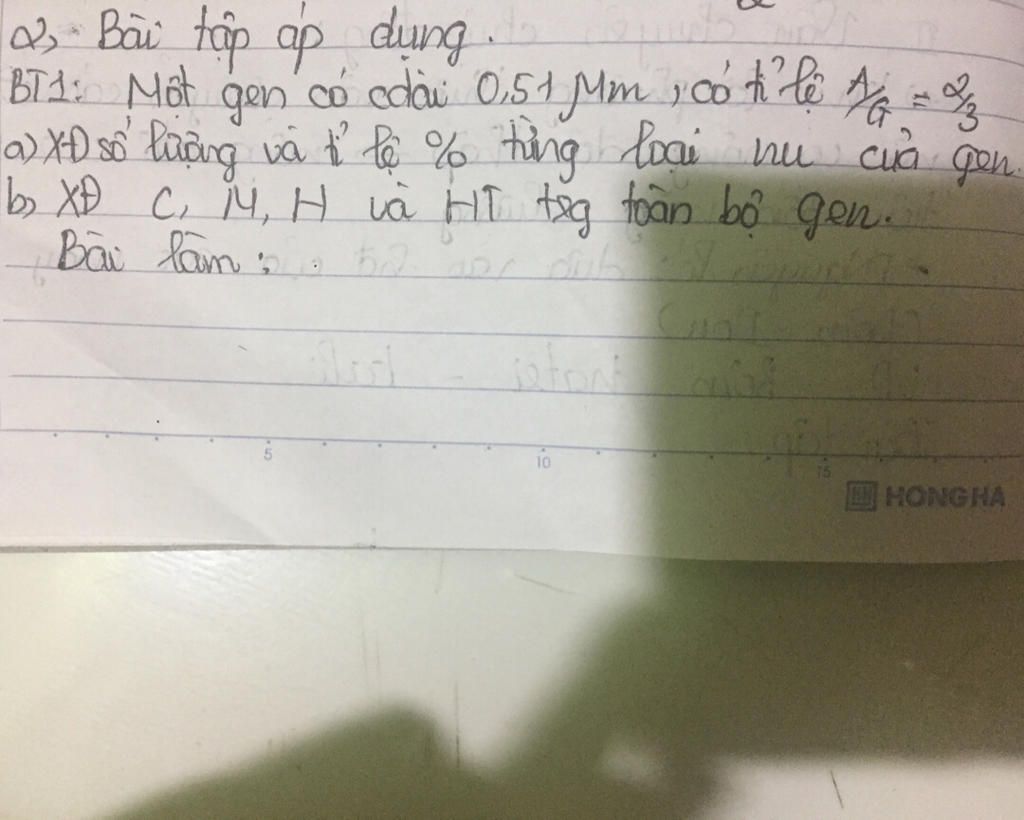 2, Bài tập áp dụng.
BT1: Một gen có cdài 0,51 Mm, có tỉ lệ A/G = 2/3
a) XĐ số lượng và tỉ lệ % từng loại nu của gen.
b, XĐ C, M, H và HT trg toàn bộ gen.
Bài làm:
5 10 15
HONG HA